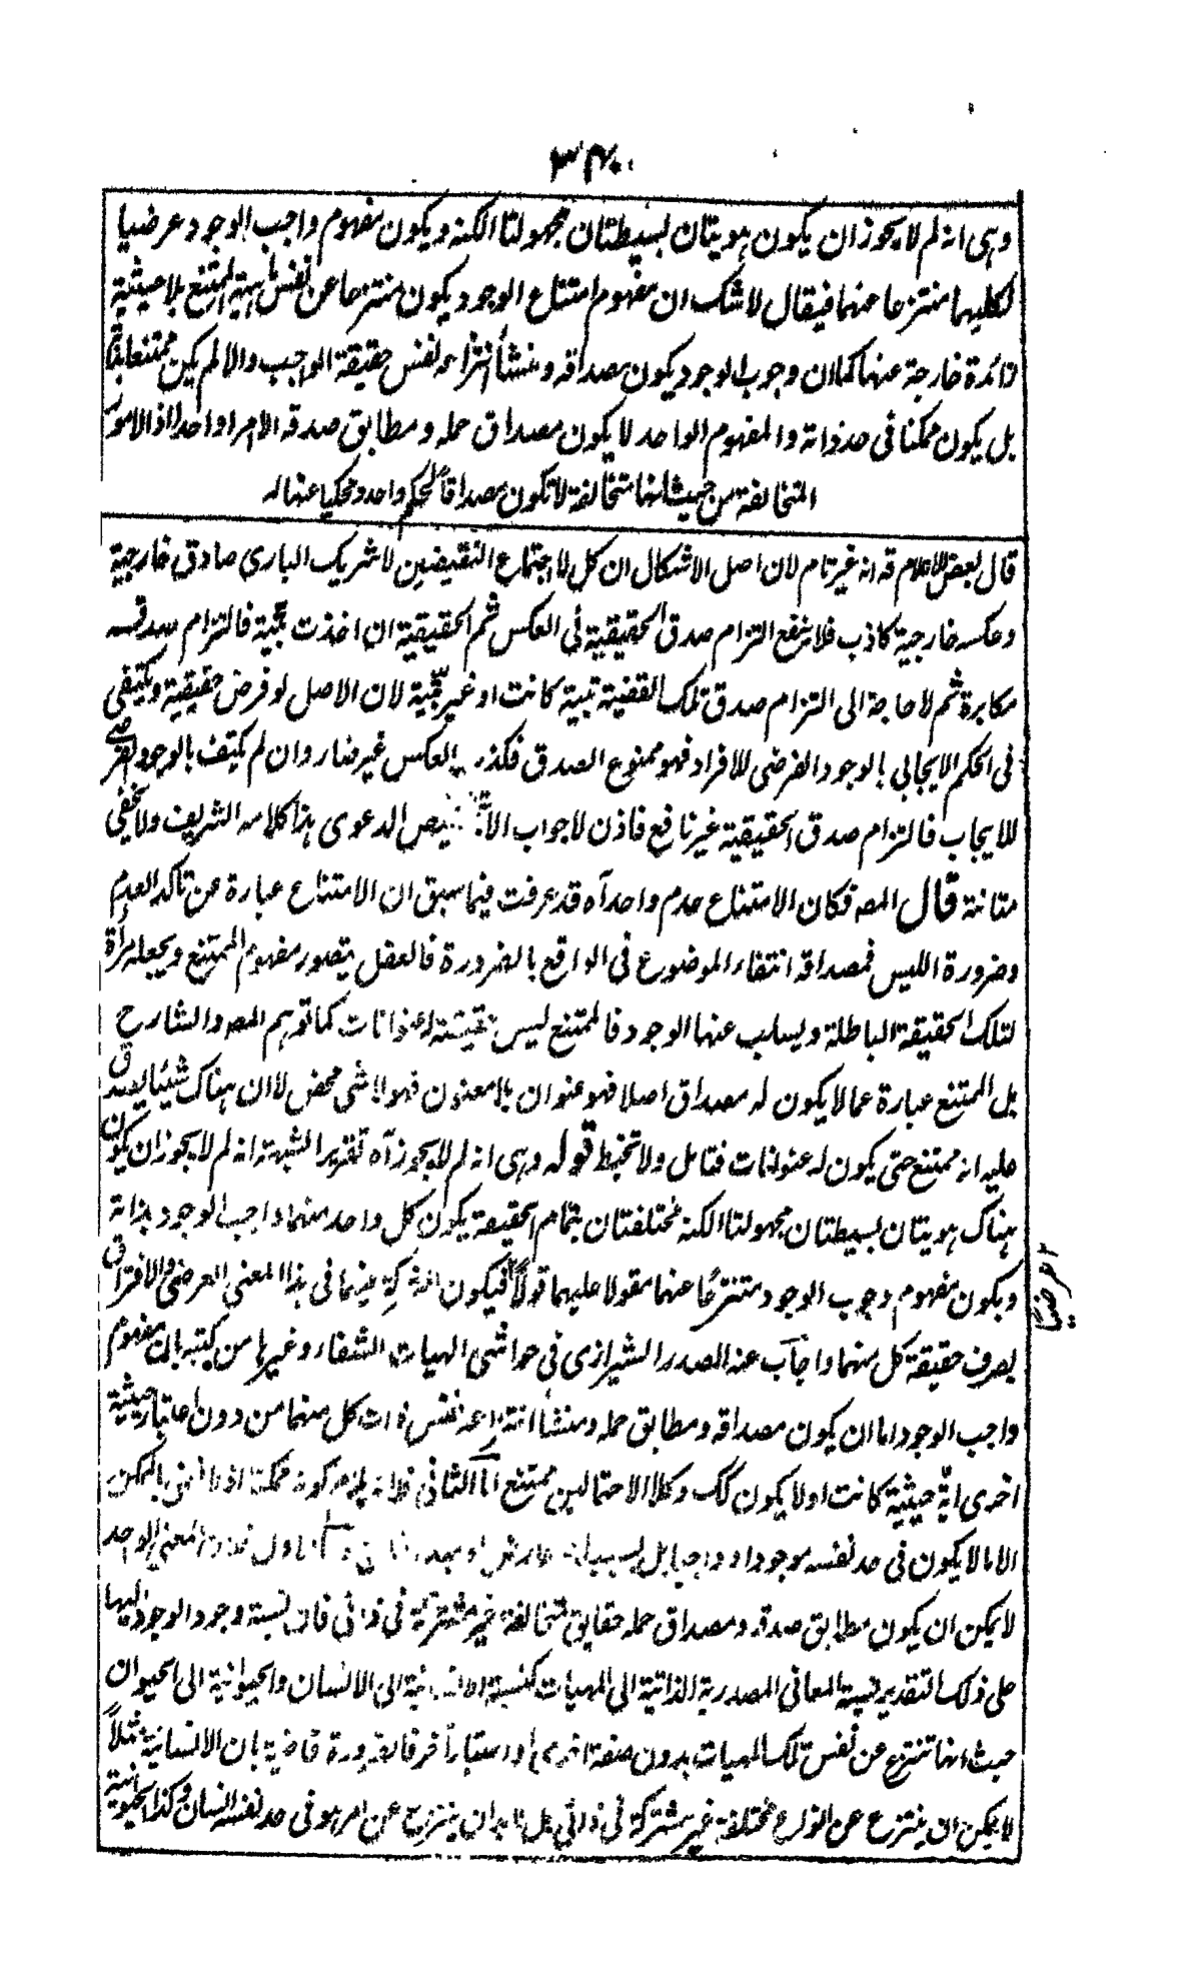 ٣٤٠
وہی انہ لم لا یجوز ان یکون ہویتان بسیطتان مجہولتا الکنہ ویکون مفہوم واجب الوجود عرضیا
لکلیہما منتزعا عنہما فیقال لا شک ان مفہوم امتناع الوجود یکون منتزعا عن نفس ماہیۃ الممتنع بلا حیثیۃ
زائدۃ خارجۃ عنہا کما ان وجوب الوجود یکون مصداقہ ومنشأ انتزاعہ نفس حقیقۃ الواجب والا لم یکن ممتنعا بذاتہ
بل یکون ممکنا فی حد ذاتہ والمفہوم الواحد لا یکون مصداق حملہ ومطابق صدقہ الا امرا واحدا اذ الامور
المتخالفۃ من حیث انہا متخالفۃ لا تکون مصداقاً لحکم واحد ومحکیا عنہا لہ
قال بعض الاعلام قہ انہ غیر تام لان اصل الاشکال ان کل لا اجتماع النقیضین لا شریک الباری صادق خارجیۃ
وعکسہ خارجیۃ کاذب فلا ینفع التزام صدق الحقیقیۃ فی العکس ثم الحقیقیۃ ان اخذت بتیۃ فالتزام صدقہ
مکابرۃ ثم لا حاجۃ الی التزام صدق تلک القضیۃ بتیۃ کانت او غیر بتیۃ لان الاصل لو فرض حقیقیۃ ویکتفی
فی الحکم الایجابی بالوجود الفرضی للافراد فہو ممنوع الصدق فکذب العکس غیر ضار وان لم یکتف بالوجود الفرضی
للایجاب فالتزام صدق الحقیقیۃ غیر نافع فاذن لا جواب الا تخصیص الدعوی ہذا کلامہ الشریف ولا یخفی
متانتہ قال المصہ فکان الامتناع عدم واحد آہ قد عرفت فیما سبق ان الامتناع عبارۃ عن تاکد العدم
وضرورۃ اللیس فمصداقہ انتفاء الموضوع فی الواقع بالضرورۃ فالعقل یتصور مفہوم الممتنع ویجعلہ مرأۃ
لتلک الحقیقۃ الباطلۃ ویسلب عنہا الوجود فالممتنع لیس حقیقتہ لا عنوانات کما توہم المصہ والشارح
بل الممتنع عبارۃ عما لا یکون لہ مصداق اصلا فہو عنوان بلا معنون فہو لا شی محض لا ان ہناک شیئا یصدق
علیہ انہ ممتنع حتی یکون لہ عنوانات فتامل ولا تخبط قولہ وہی انہ لم لا یجوز آہ تقریر الشبہۃ انہ لم لا یجوز ان یکون
ہناک ہویتان بسیطتان مجہولتا الکنہ مختلفتان بتمام الحقیقۃ یکون کل واحد منہما واجب الوجود بذاتہ
ویکون مفہوم وجوب الوجود منتزعًا عنہما مقولا علیہما قولاً عرضیًا فیکون الشرکۃ بینہما فی ہذا المعنی العرضی والافتراق
بصرف حقیقۃ کل منہما واجاب عنہ الصدر الشیرازی فی حواشی الہیات الشفاء وغیرہا من کتبہ بان مفہوم
واجب الوجود اما ان یکون مصداقہ ومطابق حملہ ومنشأ انتزاعہ نفس ذات کل منہما من دون اعتبار حیثیۃ
اخری ایۃ حیثیۃ کانت اولا یکون کک وکلا الاحتمالین ممتنع اما الثانی فلانہ یلزم کونہ ممکنا اذ لا نعنی بالممکن
الا ما لا یکون فی حد نفسہ موجودا وواجبا بل بسبب الاول فلان المعنی الواحد
لا یمکن ان یکون مطابق صدقہ ومصداق حملہ حقایق متخالفۃ غیر مشترکۃ فی ذاتی فان نسبۃ وجود الوجود الیہا
علی ذلک التقدیر نسبۃ المعانی المصدریۃ الذاتیۃ الی المہیات کنسبۃ الانسانیۃ الی الانسان والحیوانیۃ الی الحیوان
حیث انہا تنتزع عن نفس تلک المہیات بدون صفۃ اخری او اعتبار آخر فالضرورۃ قاضیۃ بان الانسانیۃ مثلاً
لا یمکن ان ینتزع عن انواع مختلفۃ غیر مشترکۃ فی ذاتی بل لا بد ان ینتزع عن امر ہو فی حد نفسہ انسان وکذا الحیوانیۃ